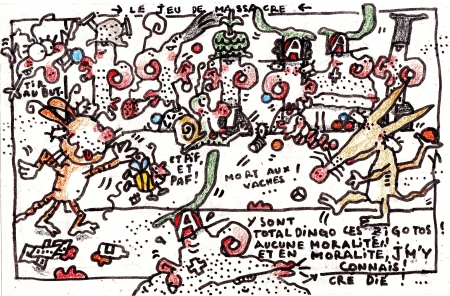 → LE JEU DE MASSACRE ←
TIR
AU BUT
ET PAF!
ET
PAF!
MORT AUX
VACHES!
Y SONT
TOTAL DINGO CES ZIGOTOS!
AUCUNE MORALITÉ!
ET EN MORALITÉ, J'M'Y
CONNAIS!
CRE DIÉ! ...